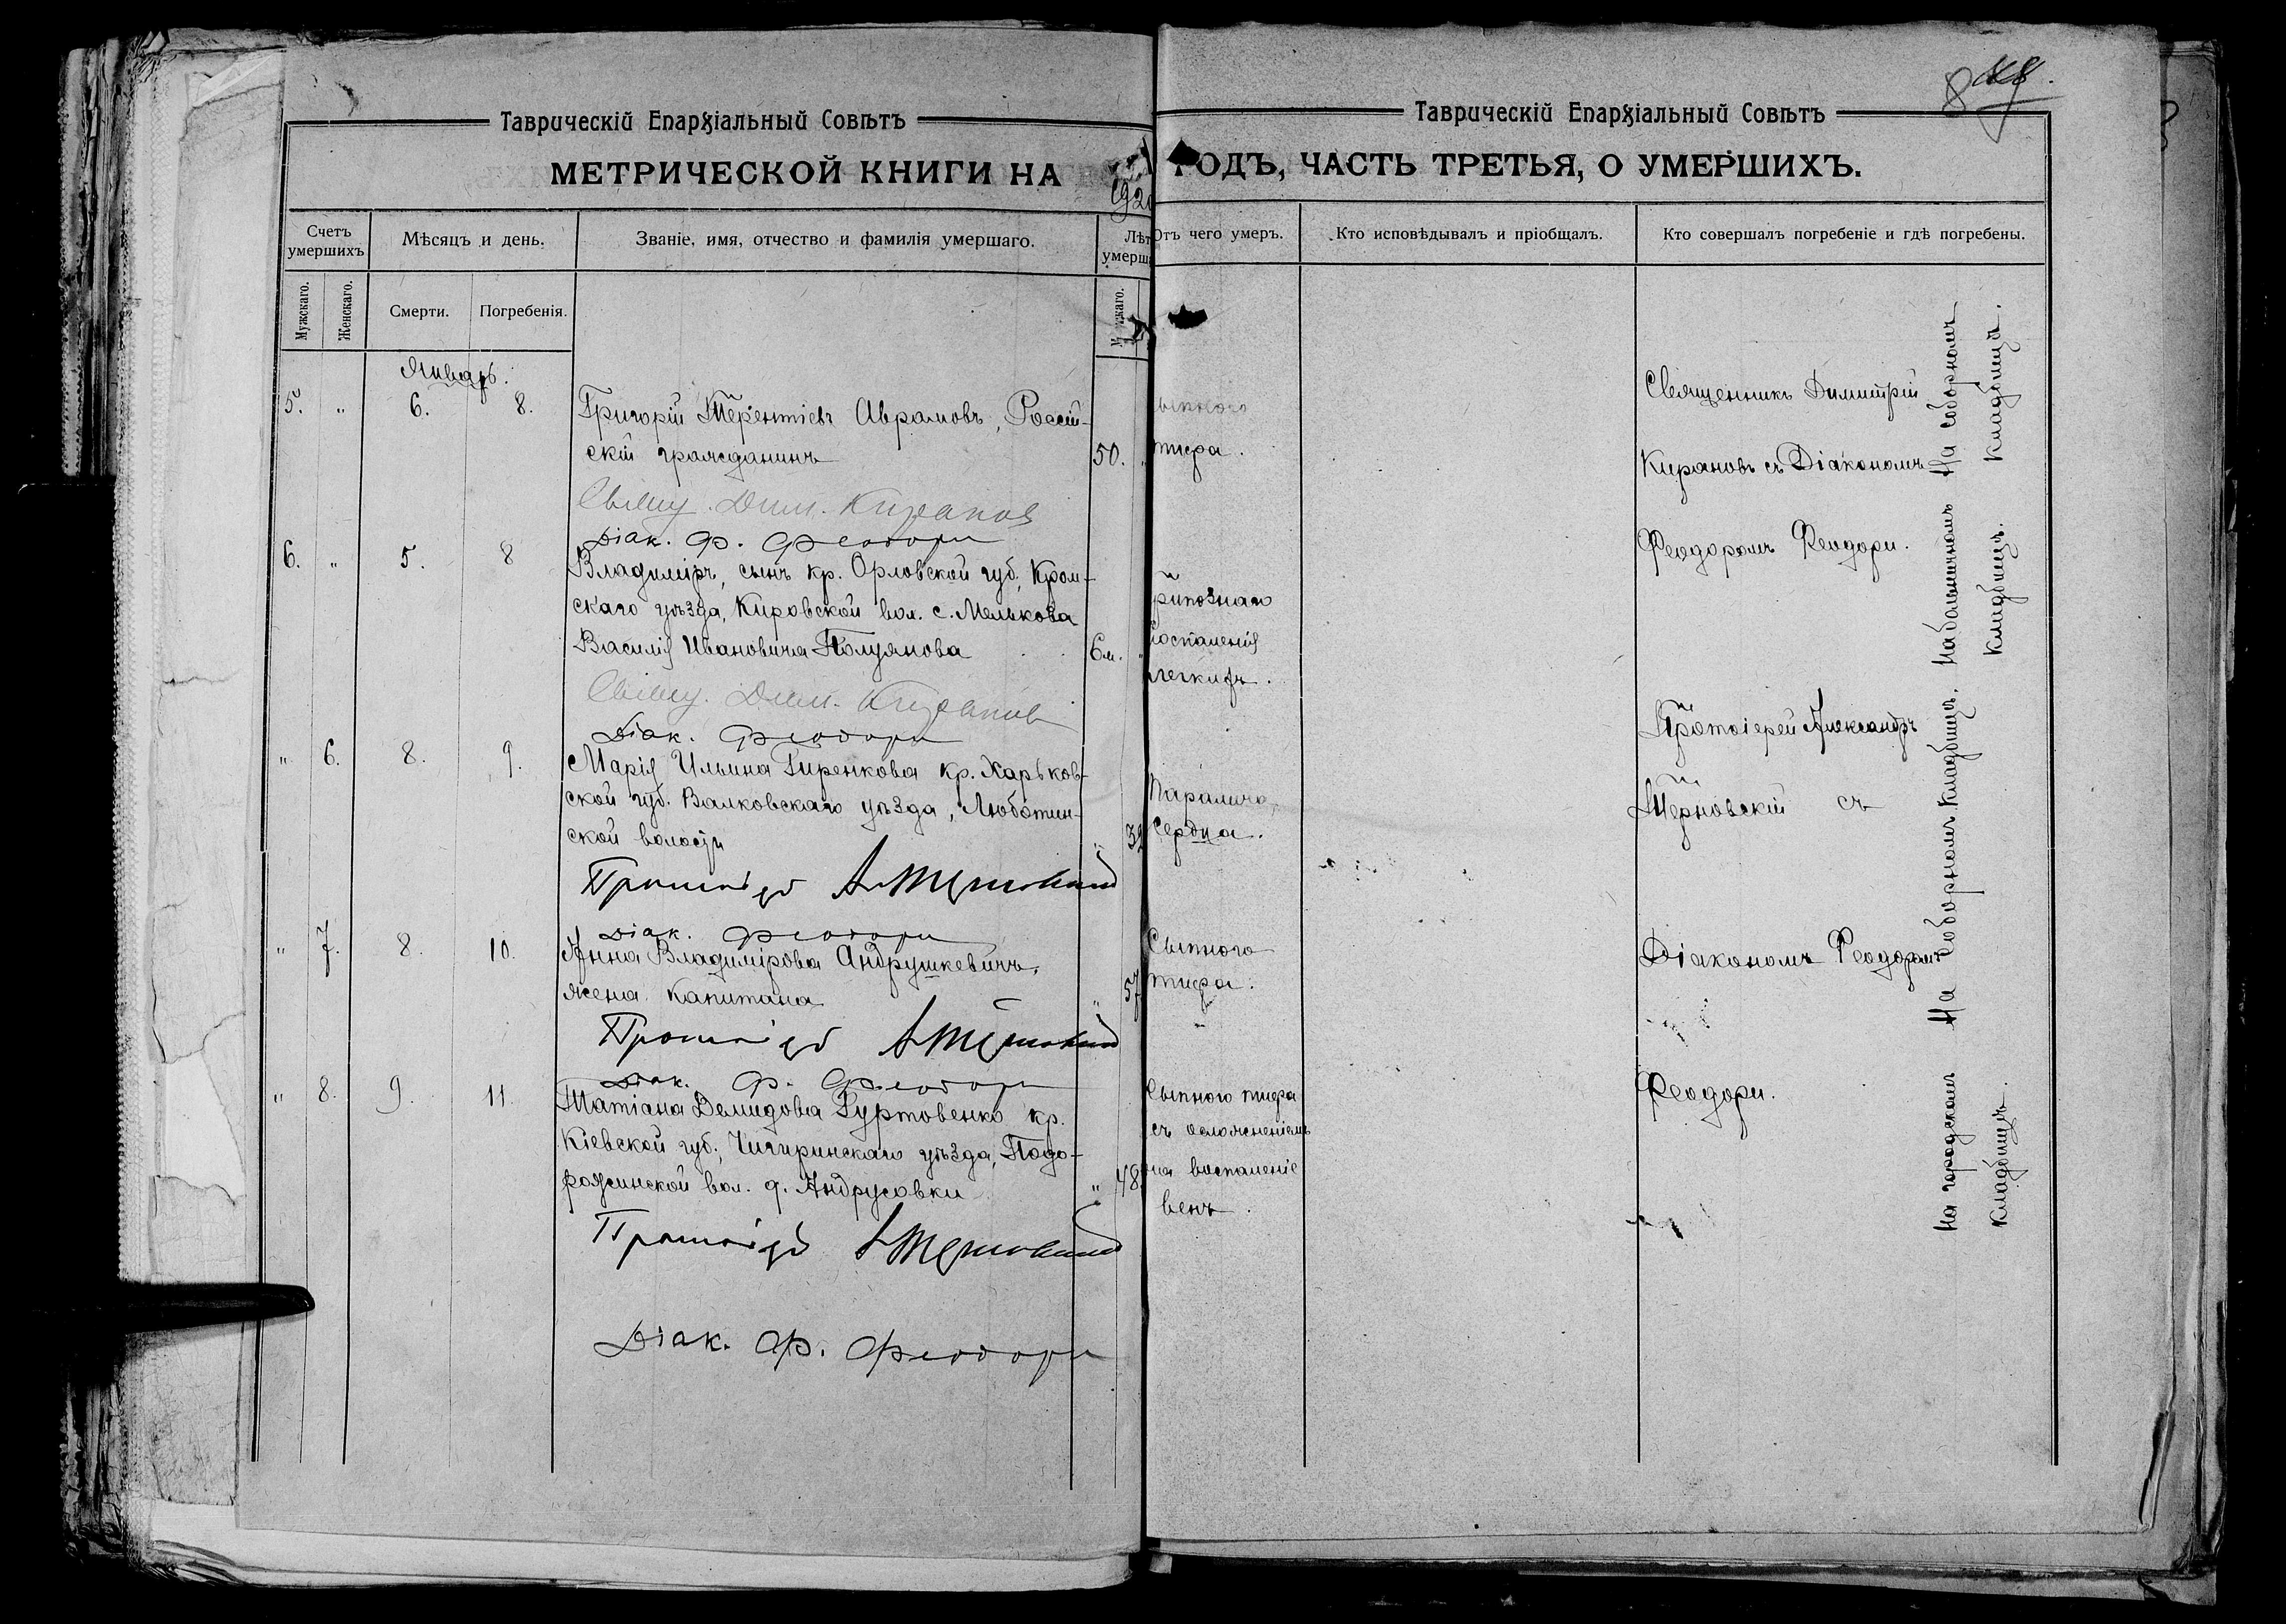 Таврическій Епархіальный Совѣтъ
МЕТРИЧЕСКОЙ КНИГИ НА
192
Счетъ умершихъ
Мѣсяцъ и день.
Званіе, имя, отчество и фамилія умершаго.
Лѣт
умерш
Мужскаго.
Женскаго.
Смерти.
Погребенія.
Январь.
5. „ 6. 8. Григорій Терентіевъ Аврамовъ, Россій-
скій гражданинъ 50.
Свящ. Дим. Киранов
Діак. Ф. Феодори
6. „ 5. 8 Владиміръ, сынъ кр. Орловской губ. Кром-
скаго уѣзда, Кировской вол. с. Мелькова
Василія Ивановича Полуянова 6 м. „
Свящ. Дим. Киранов
Діак. Феодори
„ 6. 8. 9. Марія Ильина Гиренкова кр. Харьков-
ской губ. Валковскаго уѣзда, Люботин-
ской волости „ 32
Діак. Феодори
„ 7. 8. 10. Анна Владимірова Андрушкевичъ,
жена капитана „ 57
Діак. Ф. Феодори
„ 8. 9. 11. Татіана Демидова Гуртовенко кр.
Кіевской губ., Чигиринскаго уѣзда, Подо-
рожинской вол. д. Андрусовки „ 48
Діак. Ф. Феодори
8
Таврическій Епархіальный Совѣтъ
ГОДЪ, ЧАСТЬ ТРЕТЬЯ, О УМЕРШИХЪ.
Отъ чего умеръ.
Кто исповѣдывалъ и пріобщалъ.
Кто совершалъ погребеніе и гдѣ погребены.
сыпного
тифа.
крупознаго
воспаленія
легкихъ.
Паралича
сердца.
Сыпного
тифа.
Сыпного тифа
съ осложненіемъ
на воспаленіе
венъ.
Священникъ Димитрій
Кирановъ съ Діакономъ
Феодоромъ Феодори.
Протоіерей Александръ
Терновскій съ
Діакономъ Феодоромъ
Феодори.
На соборномъ
кладбищѣ.
кладбищѣ.
На соборномъ кладбищѣ.
На городскомъ
кладбищѣ.